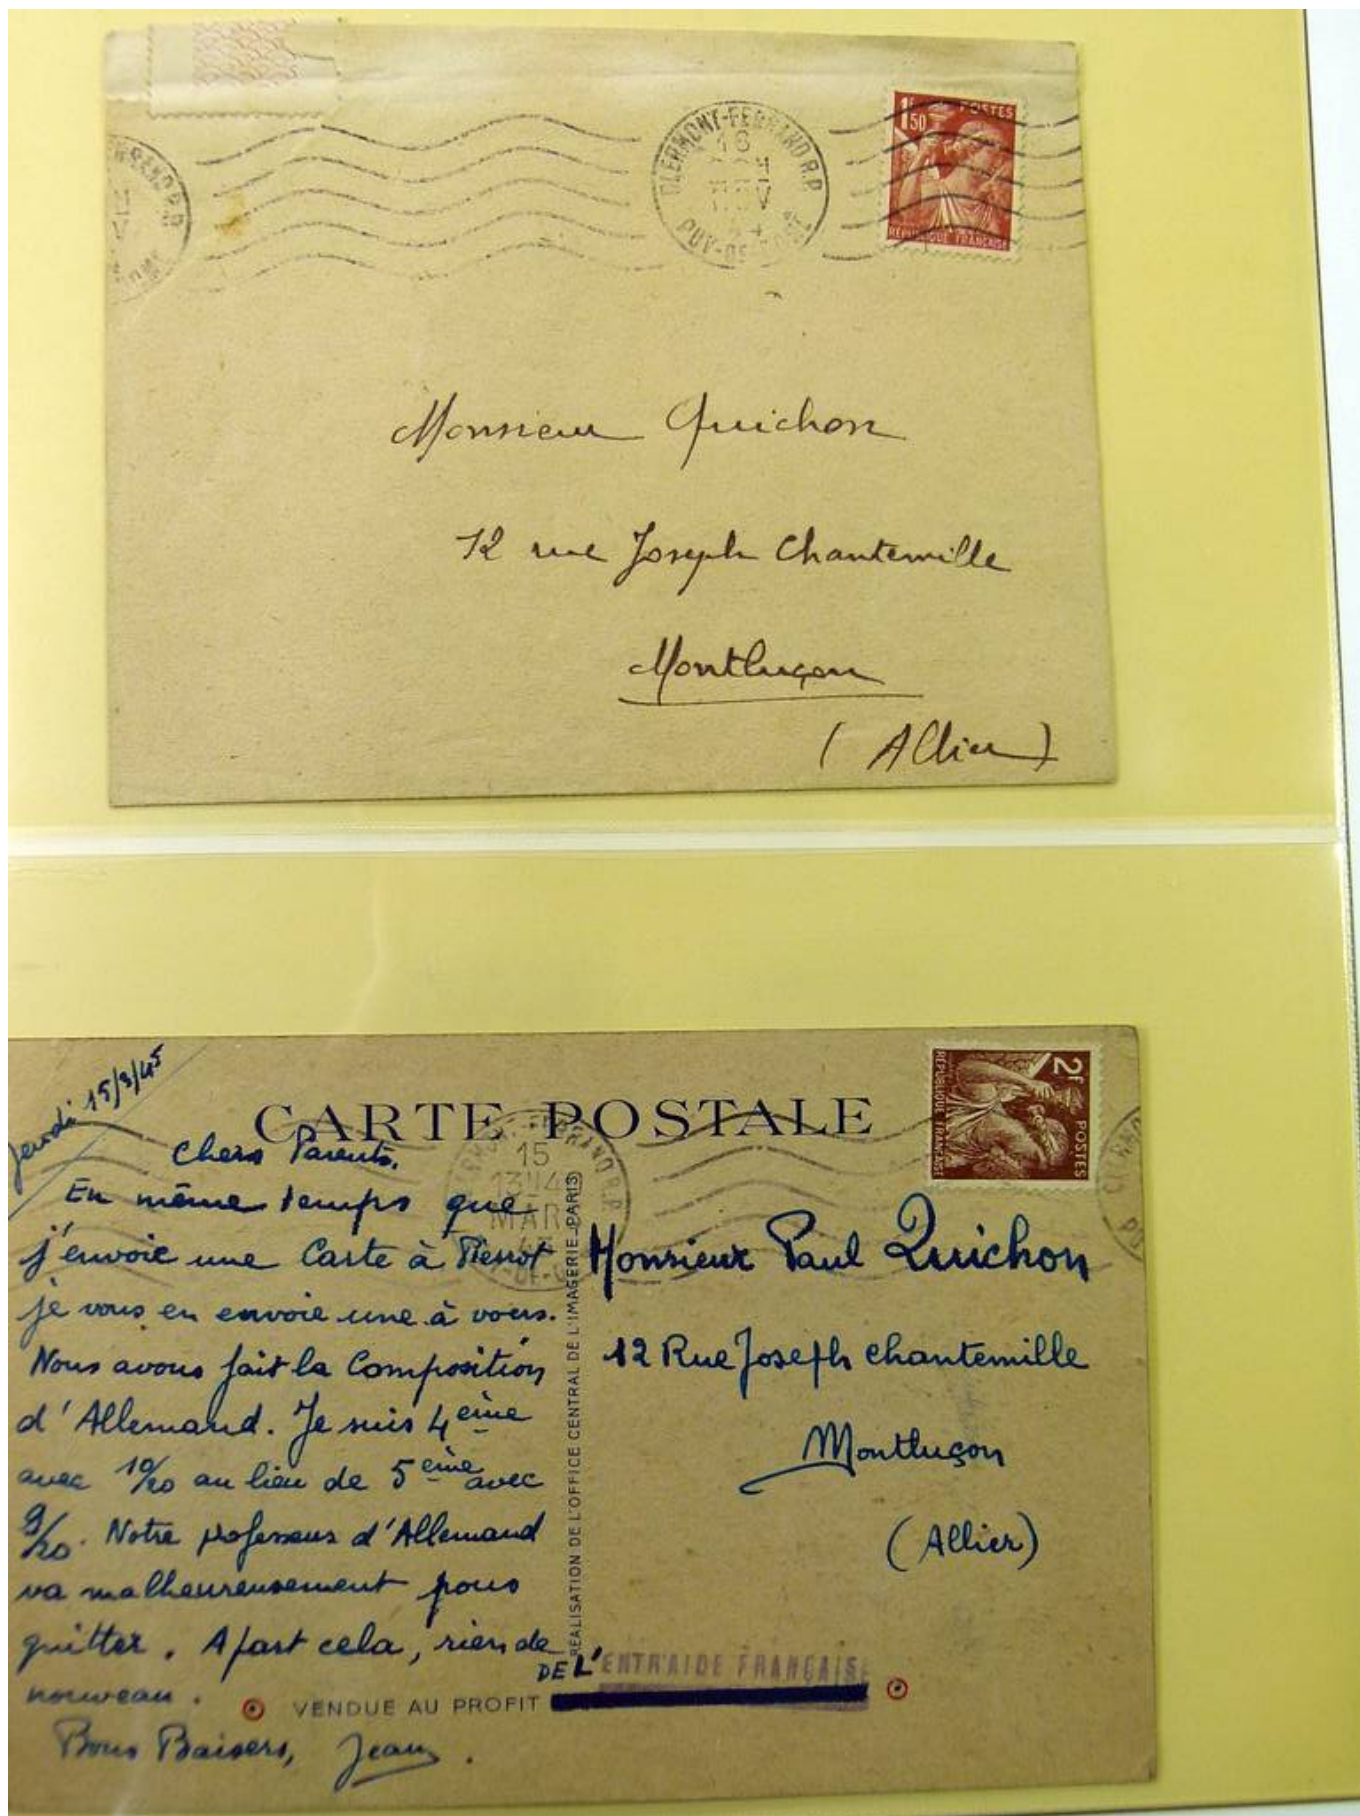 CLERMONT-FERRAND R.P.
18
PUY-DE-DOME
1F50
POSTES
REPUBLIQUE FRANCAISE
Monsieur Quichon
12 rue Joseph Chantemille
Montluçon
(Allier)
Jeudi 15/3/45
CARTE POSTALE
2F
POSTES
REPUBLIQUE FRANCAISE
15
MARS
Chers Parents,
En même temps que
j'envoie une Carte à Pierrot
je vous en envoie une à vous.
Nous avons fait la Composition
d'Allemand. Je suis 4ème
avec 10/20 au lieu de 5ème avec
9/20. Notre professeur d'Allemand
va malheureusement nous
quitter. A part cela, rien de
nouveau.
Bons Baisers, Jean.
RÉALISATION DE L'OFFICE CENTRAL DE L'IMAGERIE-PARIS
Monsieur Paul Quichon
12 Rue Joseph Chantemille
Montluçon
(Allier)
VENDUE AU PROFIT DE L'ENTR'AIDE FRANÇAISE